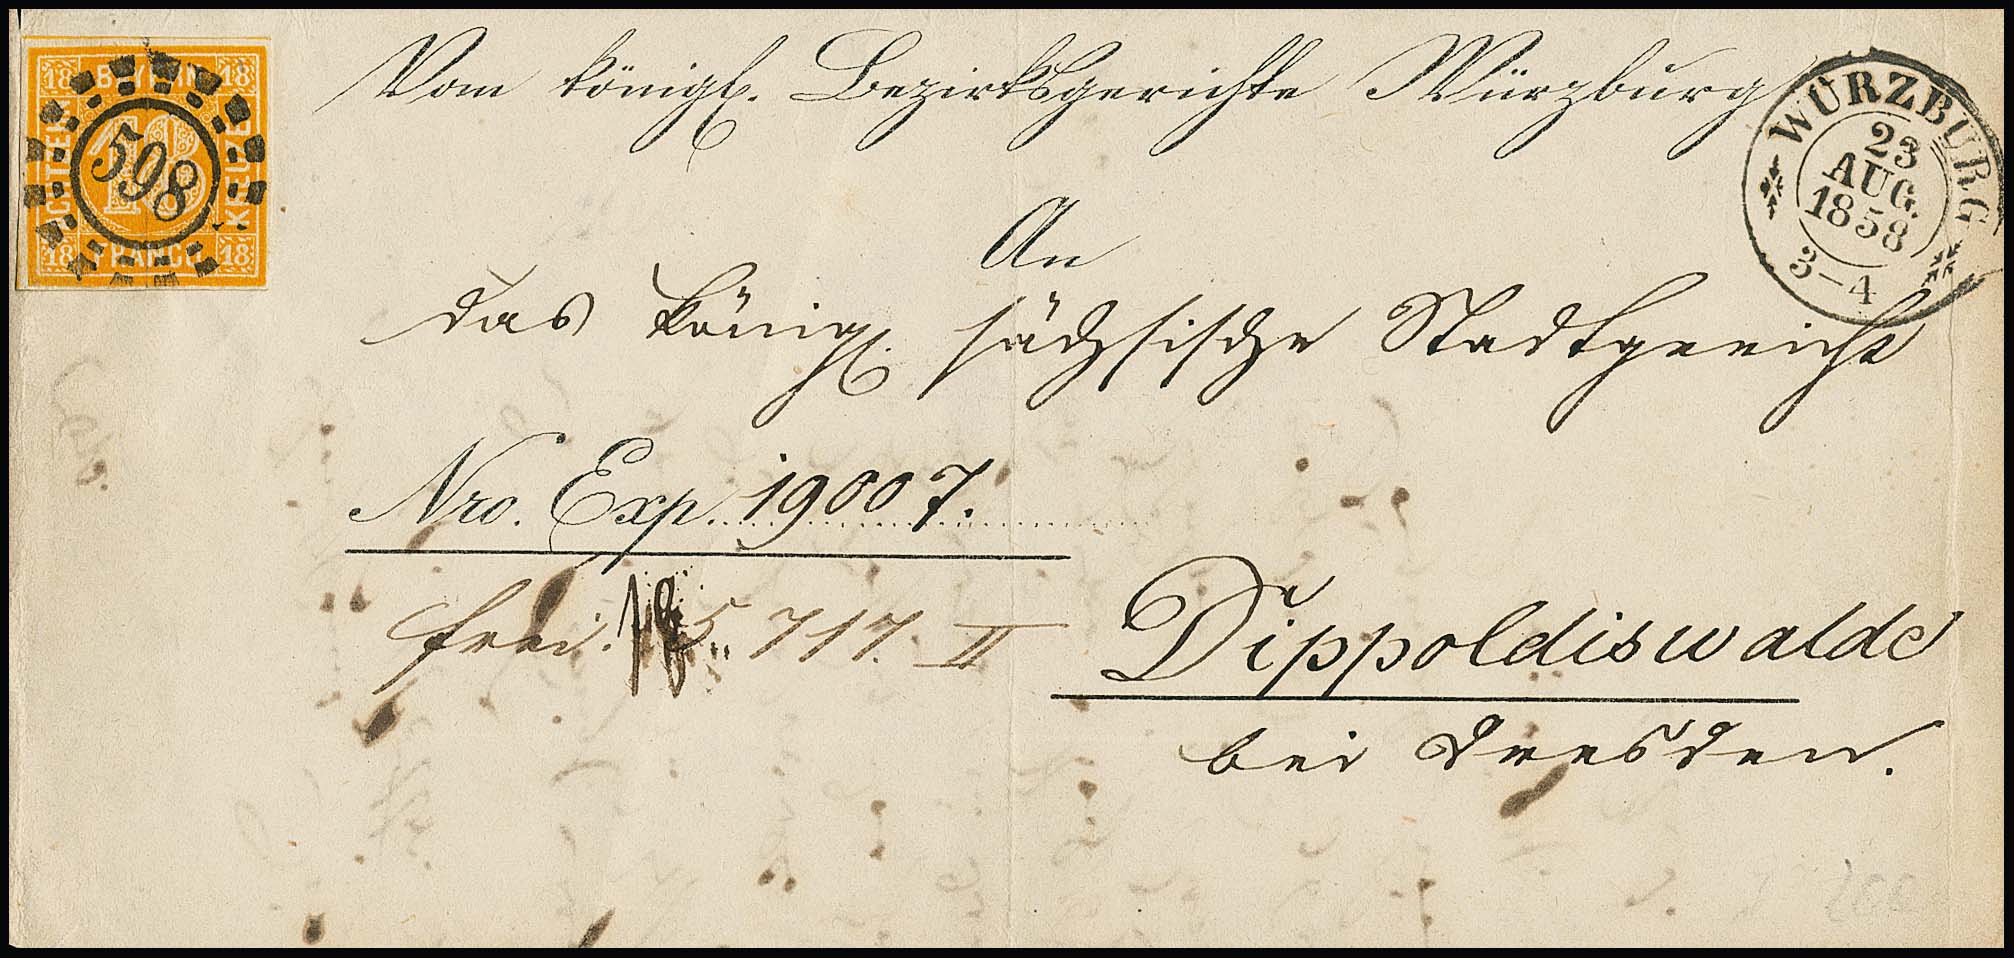 18 BAYERN 18
ACHTZEHN
18
KREUZER
18 FRANCO 18
598
Vom königl. Bezirksgerichte Würzburg
WÜRZBURG
23
AUG.
1858
3-4
An
das königl. sächsische Stadtgericht
Nro. Exp. 19007.
frei. 18 5717. II
Dippoldiswalde
bei Dresden.